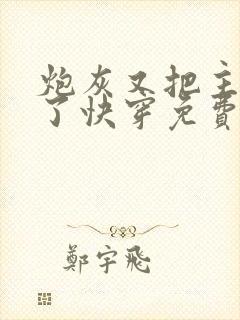 炮灰又把主
了快穿免費
鄭宇飛